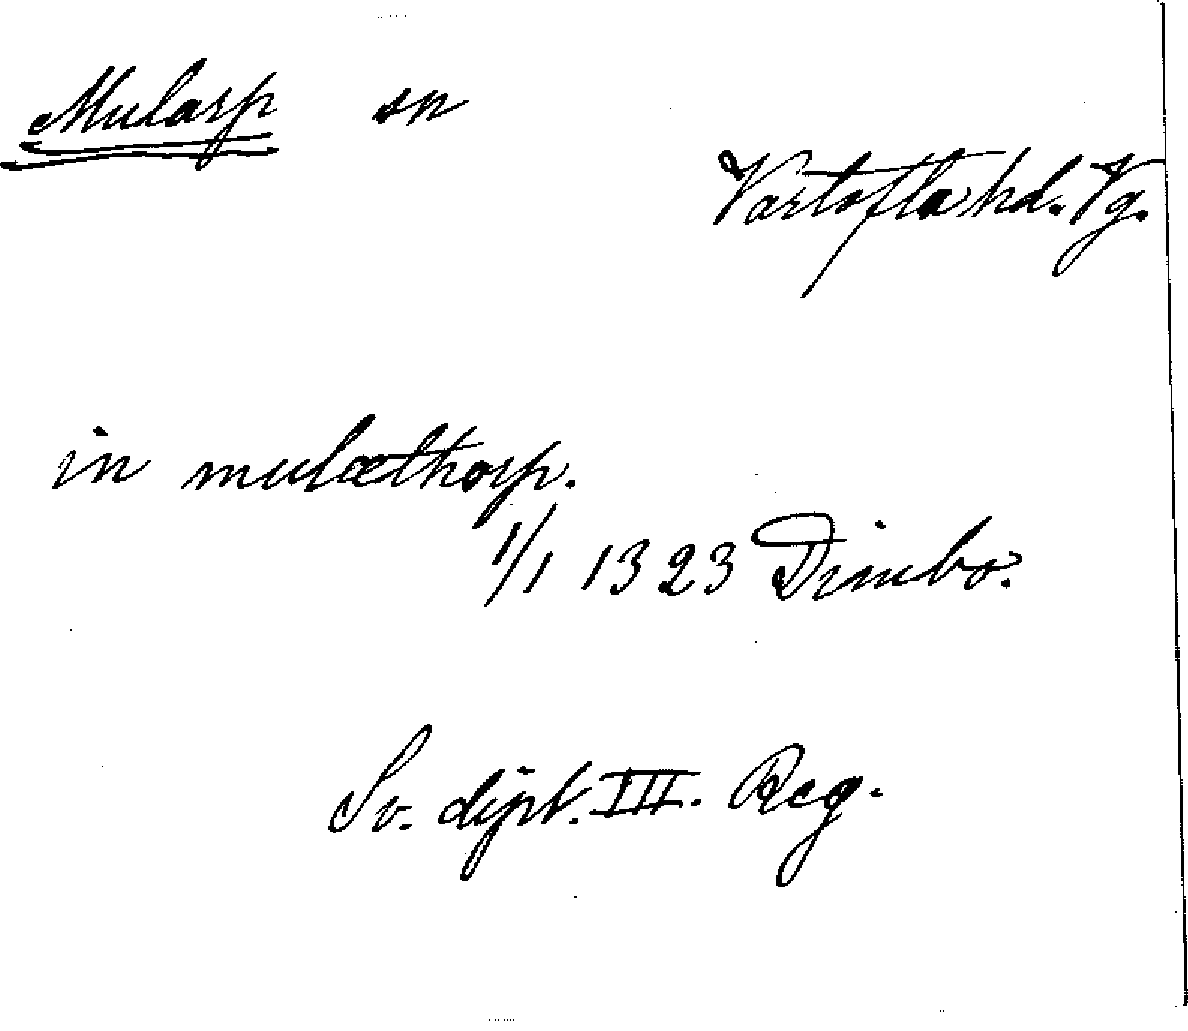 Mularp sn
Vartofta hd. Vg.
in mulæthorp.
1/1 1323 Dimbo.
Sv. dipl. III. Reg.